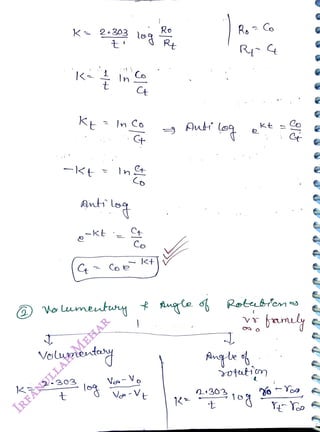 K = 2.303 / t log R₀ / Rt
R₀ = C₀
Rt = Ct
K = 1 / t ln C₀ / Ct
Kt = ln C₀ / Ct ⇒ Anti log e^Kt = C₀ / Ct
-Kt = ln Ct / C₀
Anti log
e^-Kt = Ct / C₀
Ct = C₀e^-Kt
② Volumentary & Angle of Rotation ⇒
Volumentary
Angle of
rotation
K = 2.303 / t log V∞ - V₀ / V∞ - Vt
K = 2.303 / t log r₀ - r∞ / rt - r∞
IRFANULLAH MEHAR